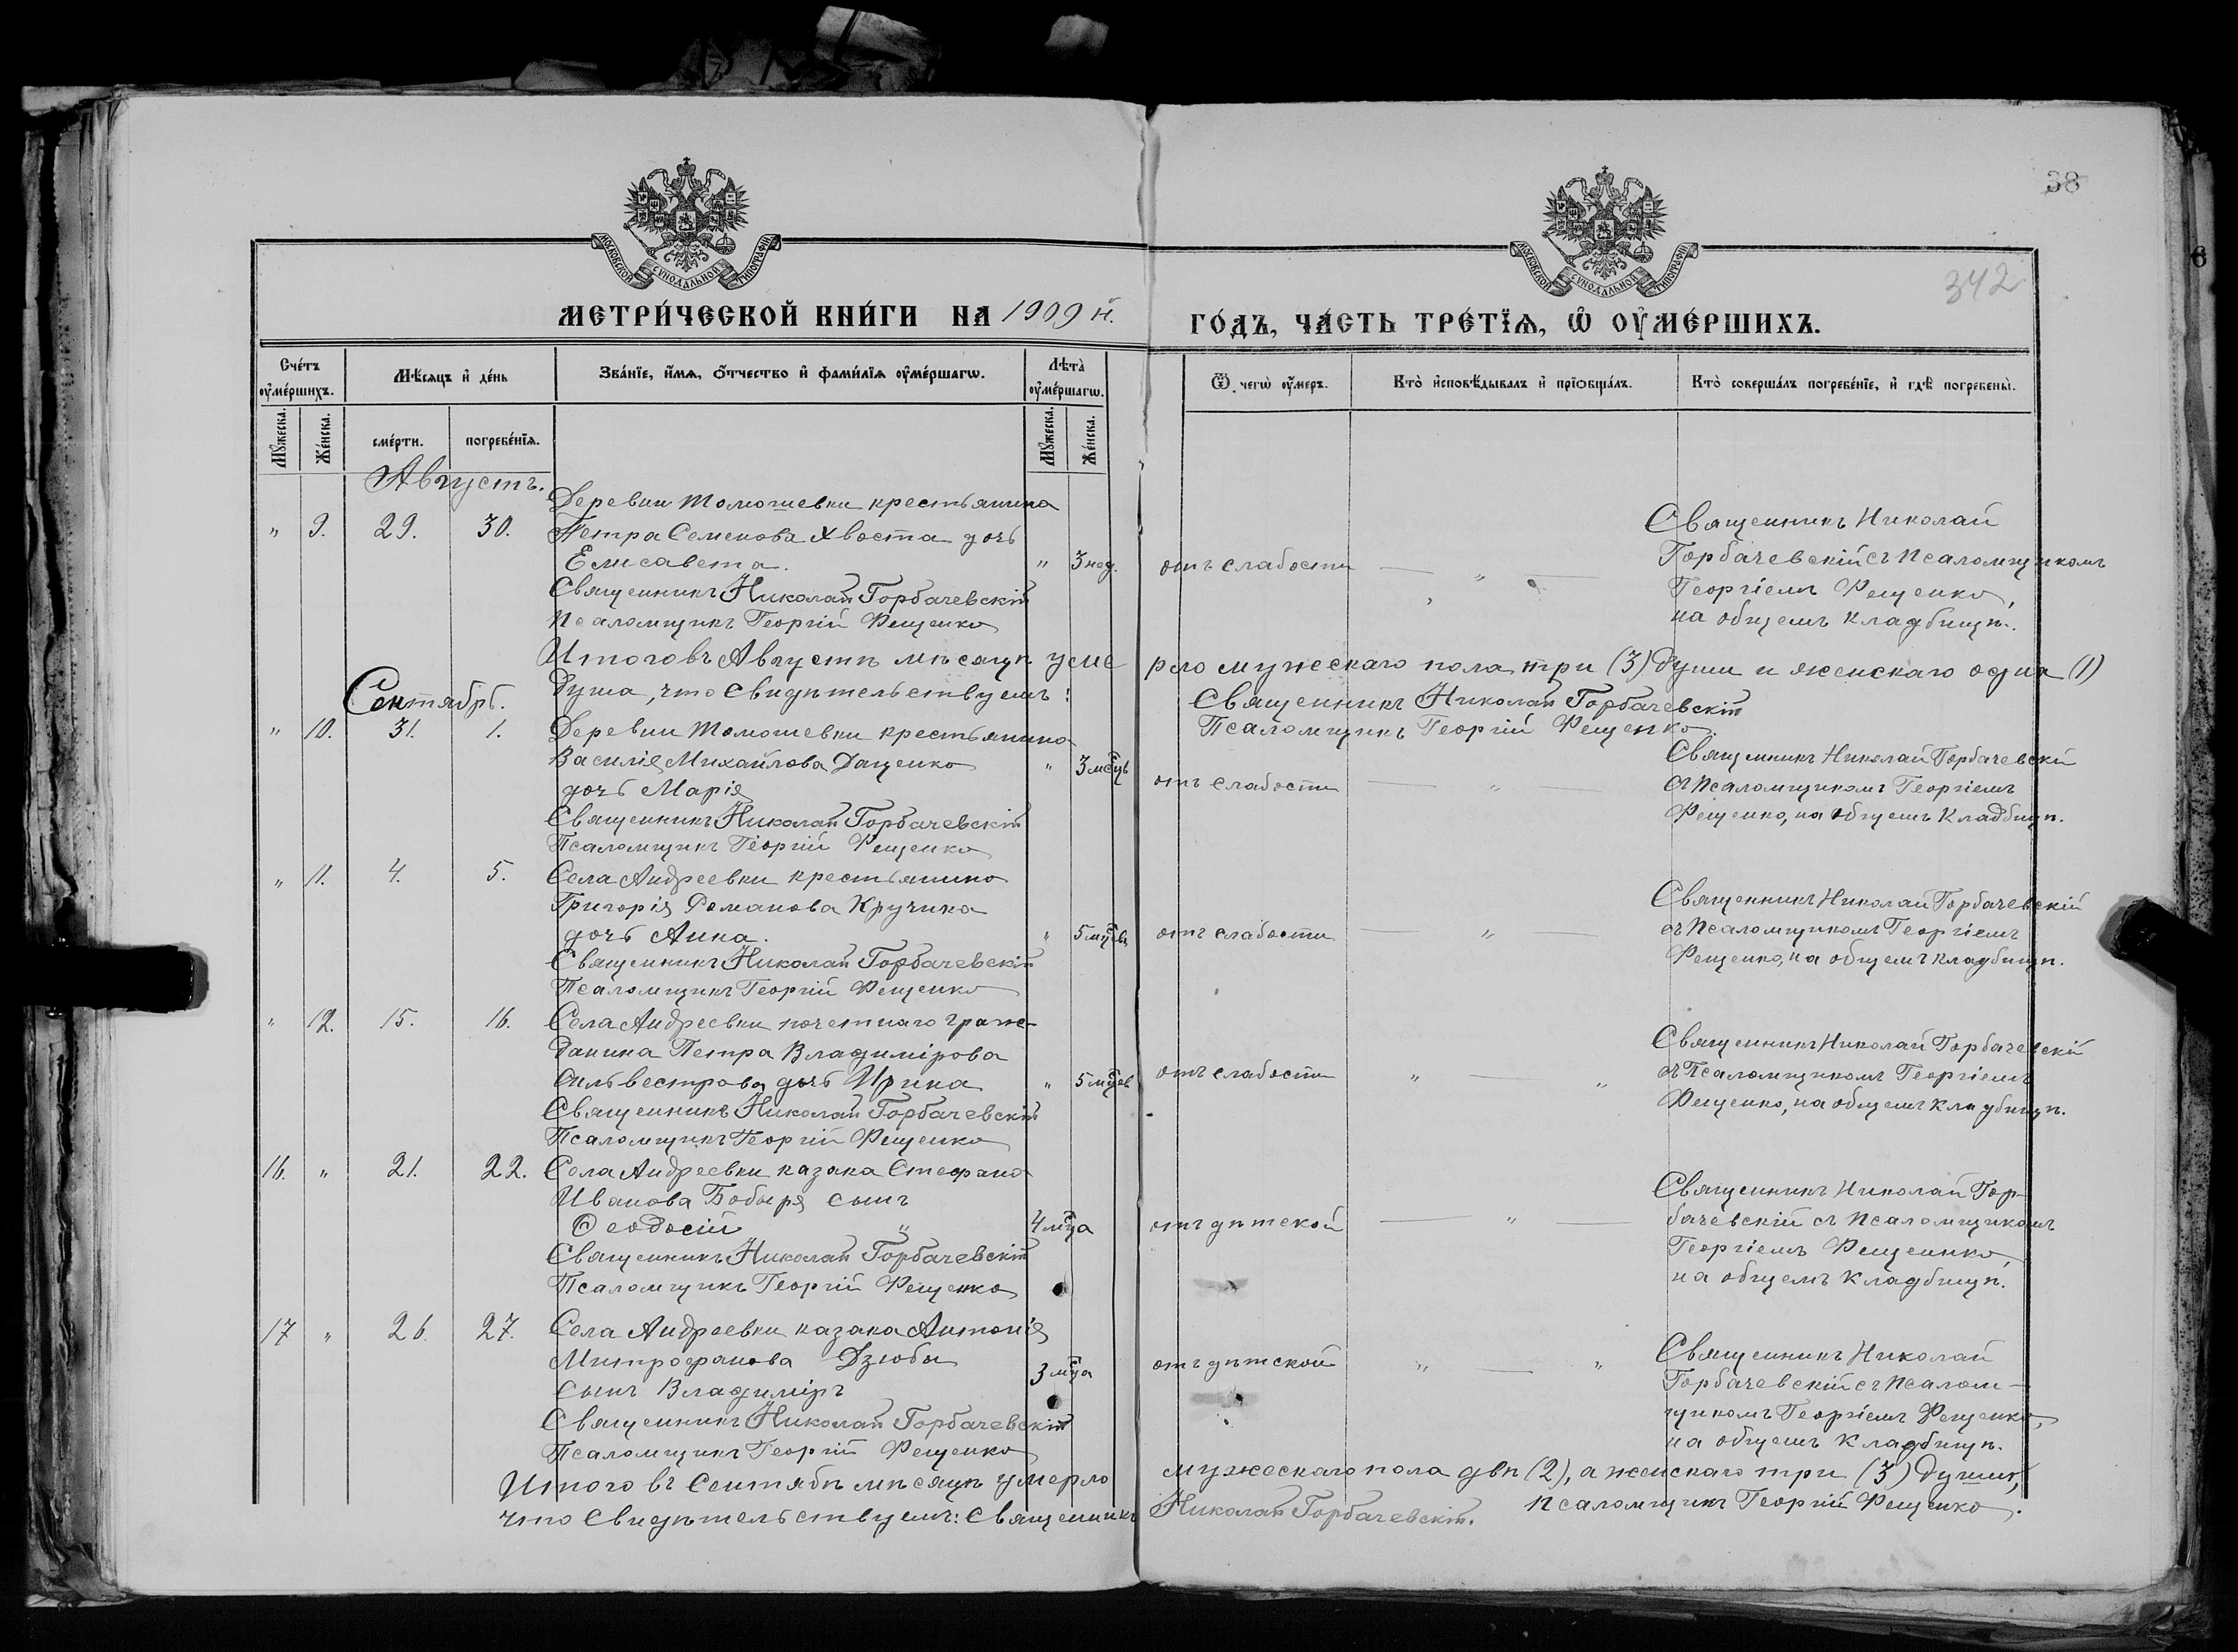 38
342
МОСКОВСКОЙ СѴНОДАЛЬНОЙ ТИПОГРАФІИ
МОСКОВСКОЙ СѴНОДАЛЬНОЙ ТИПОГРАФІИ
МЕТРИ́ЧЕСКОЙ КНИ́ГИ НА 1909 й.
ГО́ДЪ, ЧА́СТЬ ТРЕ́ТЇѦ, Ѡ҆ ОУ҆МЕ́РШИХЪ.
Сче́тъ оу҆ме́ршихъ.
Мѣ́сяцъ и҆ де́нь
Зва́нїе, и҆́мѧ, ѻ҆́тчество и҆ фами́лїѧ оу҆ме́ршагѡ.
Лѣ́та оу҆ме́ршагѡ.
Ѿ чегѡ̀ оу҆́меръ.
Кто̀ и҆сповѣ́дывалъ и҆ прїѡбща́лъ.
Кто̀ соверша́лъ погребе́нїе, и҆ гдѣ̀ погребены̀.
Мꙋ́жеска. Же́нска. сме́рти. погребе́нїѧ. Мꙋ́жеска. Же́нска.
Августъ.
Деревни Томошевки крестьянина
" 9. 29. 30. Петра Семенова Хвоста дочь
Елисавета. " 3 нед. отъ слабости — " —
Священникъ Николай Горбачевскій
Псаломщикъ Георгій Рещенко
Священникъ Николай
Горбачевскій съ псаломщикомъ
Георгіемъ Рещенко,
на общемъ кладбищѣ.
Итого въ Августѣ мѣсяцѣ умерло мужескаго пола три (3) души и женскаго одна (1)
душа, что свидѣтельствуемъ: Священникъ Николай Горбачевскій
Псаломщикъ Георгій Рещенко.
Сентябрь.
" 10. 31. 1. Деревни Томошевки крестьянина
Василія Михайлова Даценко " 3 мсцъ
дочь Марія отъ слабости — " —
Священникъ Николай Горбачевскій
Псаломщикъ Георгій Рещенко
Священникъ Николай Горбачевскій
съ псаломщикомъ Георгіемъ
Рещенко, на общемъ кладбищѣ.
" 11. 4. 5. Села Андреевки крестьянина
Григорія Романова Кручина
дочь Анна. " 5 мцевъ отъ слабости — " —
Священникъ Николай Горбачевскій
Псаломщикъ Георгій Рещенко
Священникъ Николай Горбачевскій
съ псаломщикомъ Георгіемъ
Рещенко, на общемъ кладбищѣ.
" 12. 15. 16. Села Андреевки почетнаго граж-
данина Петра Владимірова
Сильвестрова дочь Ирина " 5 мцев отъ слабости " — "
Священникъ Николай Горбачевскій
Псаломщикъ Георгій Рещенко
Священникъ Николай Горбачевскій
съ Псаломщикомъ Георгіемъ
Рещенко, на общемъ кладбищѣ.
16. " 21. 22. Села Андреевки казака Стефана
Иванова Бобыря сынъ
Ѳеодосій " 4 мца отъ дѣтской — " —
Священникъ Николай Горбачевскій
Псаломщикъ Георгій Рещенко
Священникъ Николай Гор-
бачевскій съ псаломщикомъ
Георгіемъ Рещенко,
на общемъ кладбищѣ.
17 " 26. 27. Села Андреевки казака Антонія
Митрофанова Дзюбы 3 мца отъ дѣтской " — "
сынъ Владиміръ
Священникъ Николай Горбачевскій
Псаломщикъ Георгій Рещенко
Священникъ Николай
Горбачевскій съ псалом-
щикомъ Георгіемъ Рещенко,
на общемъ кладбищѣ.
Итого въ Сентябѣ мѣсяцѣ умерло мужескаго пола двѣ (2), а женскаго три (3) души,
что свидѣтельствуемъ: Священникъ Николай Горбачевскій. Псаломщикъ Георгій Рещенко.